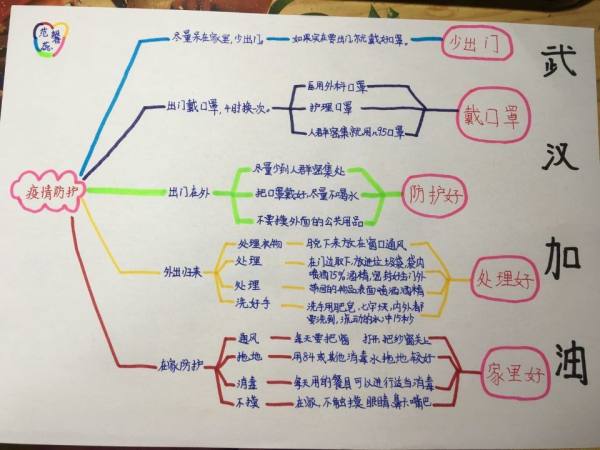 疫情防护
尽量呆在家里,少出门。
如果实在要出门就戴好口罩。
少出门
出门戴口罩,4时换一次。
医用外科口罩
护理口罩
人群密集就用n95口罩
戴口罩
出门在外
尽量少到人群密集处
把口罩戴好,尽量不喝水
不要摸外面的公共用品
防护好
外出归来
处理衣物
脱下来放在窗口通风
处理
在门边取下,放进垃圾袋,袋内
喷洒75%酒精,密封好出门外
处理
带回的物品表面喷洒酒精
洗好手
洗手用肥皂,七字诀,内外都
要洗到,流动的水冲15秒
处理好
在家防护
通风
每天要把窗 打开,把纱窗关上
拖地
用84或其他消毒水拖地较好
消毒
每天用的餐具可以进行适当消毒
不摸
在家,不触摸眼睛,鼻,嘴巴
家里好
武
汉
加
油